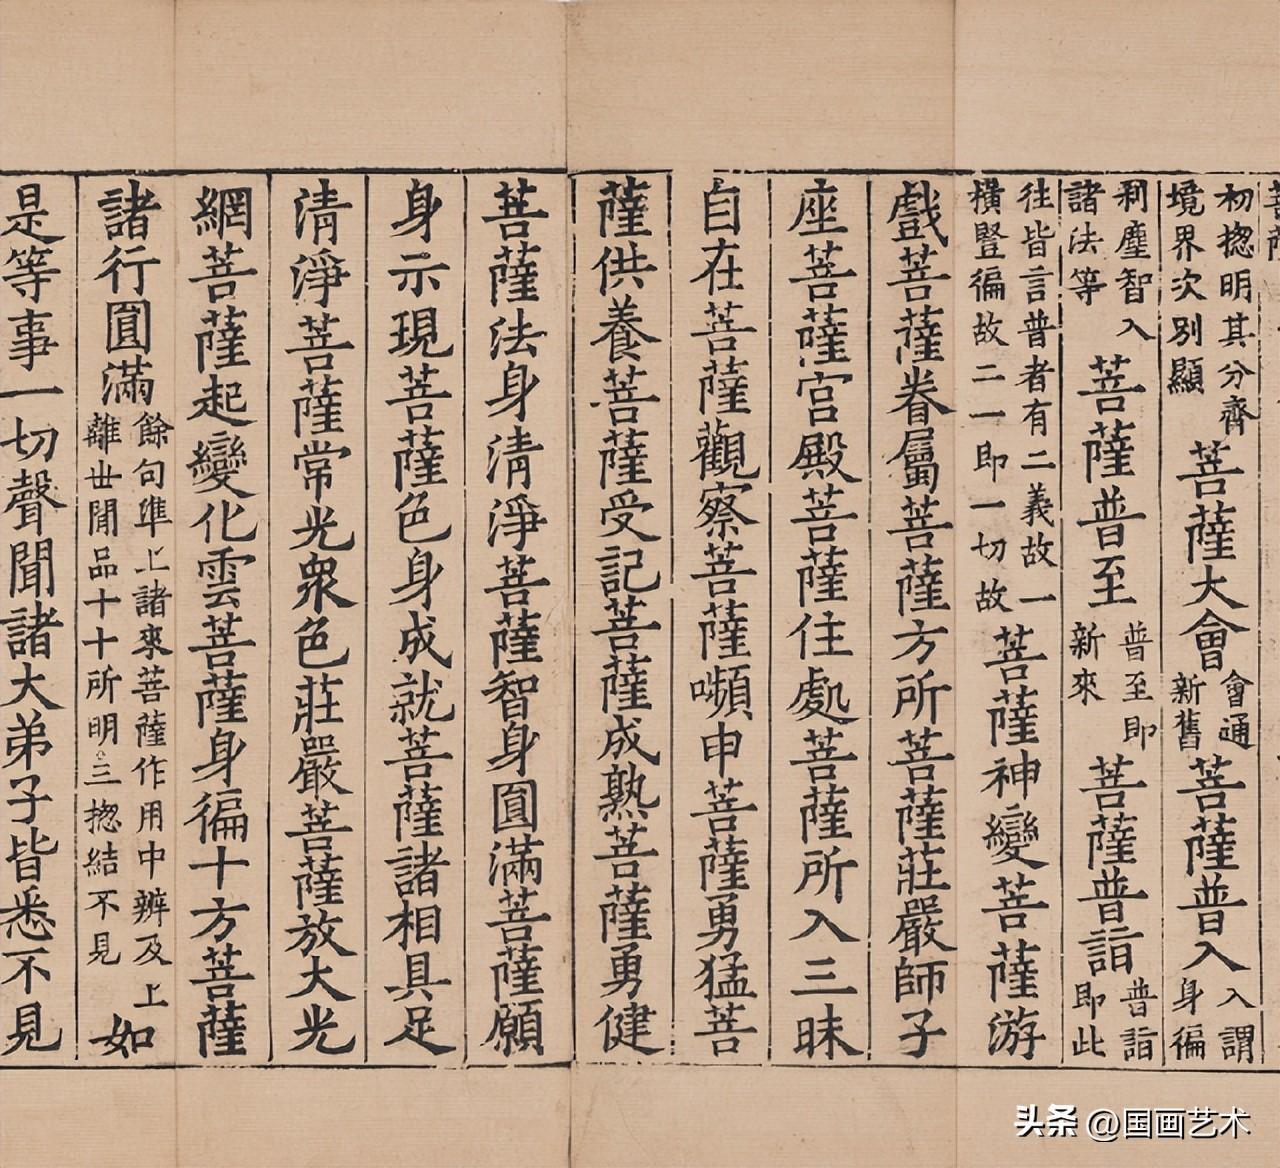 菩薩
初揔明其分齊
境界次別顯
菩薩大會
會通
新舊
菩薩普入
入謂
身徧
刹塵智入
諸法等
菩薩普至
普至即
新來
菩薩普詣
普詣
即此
往皆言普者有二義故一
橫豎徧故二一即一切故
菩薩神變菩薩游
戲菩薩眷屬菩薩方所菩薩莊嚴師子
座菩薩宮殿菩薩住處菩薩所入三昧
自在菩薩觀察菩薩嚬申菩薩勇猛菩
薩供養菩薩受記菩薩成熟菩薩勇健
菩薩法身清淨菩薩智身圓滿菩薩願
身示現菩薩色身成就菩薩諸相具足
清淨菩薩常光衆色莊嚴菩薩放大光
網菩薩起變化雲菩薩身徧十方菩薩
諸行圓滿
餘句準上諸來菩薩作用中辨及上
離世間品十十所明三揔結不見
如
是等事一切聲聞諸大弟子皆悉不見
头条 @国画艺术